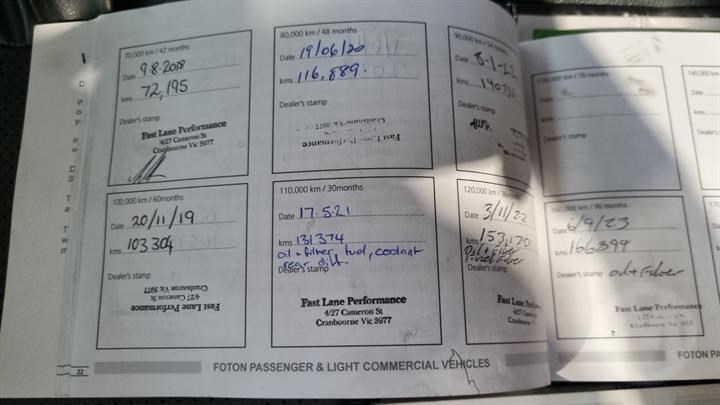 70,000 km / 42 months
Date 9-8-2018
kms 72,195
Dealer's stamp
Fast Lane Performance
4/27 Cameron St
Cranbourne Vic 3977
80,000 km / 48 months
Date 19/06/20
kms 116,889.
Dealer's stamp
Fast Lane Performance
Cranbourne Vic 3977
90,000 km / 54 months
Date 8-1-22
kms
Dealer's stamp
100,000 km / 60months
Date 20/11/19
kms 103304
Dealer's stamp
Fast Lane Performance
4/27 Cameron St
Cranbourne Vic 3977
110,000 km / 30months
Date 17.5.21
kms 131374
oil + filter, fuel, coolant
rear diff
Dealer's stamp
Fast Lane Performance
4/27 Cameron St
Cranbourne Vic 3977
120,000 km /
Date 3/11/22
kms 153,170
Oil + Filter
Fuel Filter
Dealer's stamp
Fast Lane
4/27 Cameron
Cranbourne
22
FOTON PASSENGER & LIGHT COMMERCIAL VEHICLES
130,000 km / 78 months
Date
kms
Dealer's stamp
140,000 km
Date
kms
Dealer's
160,000 km / 96 months
Date 6/9/23
kms 166899
Dealer's stamp oil + Filter
Fast Lane Performance
Cranbourne Vic 3977
FOTON PA